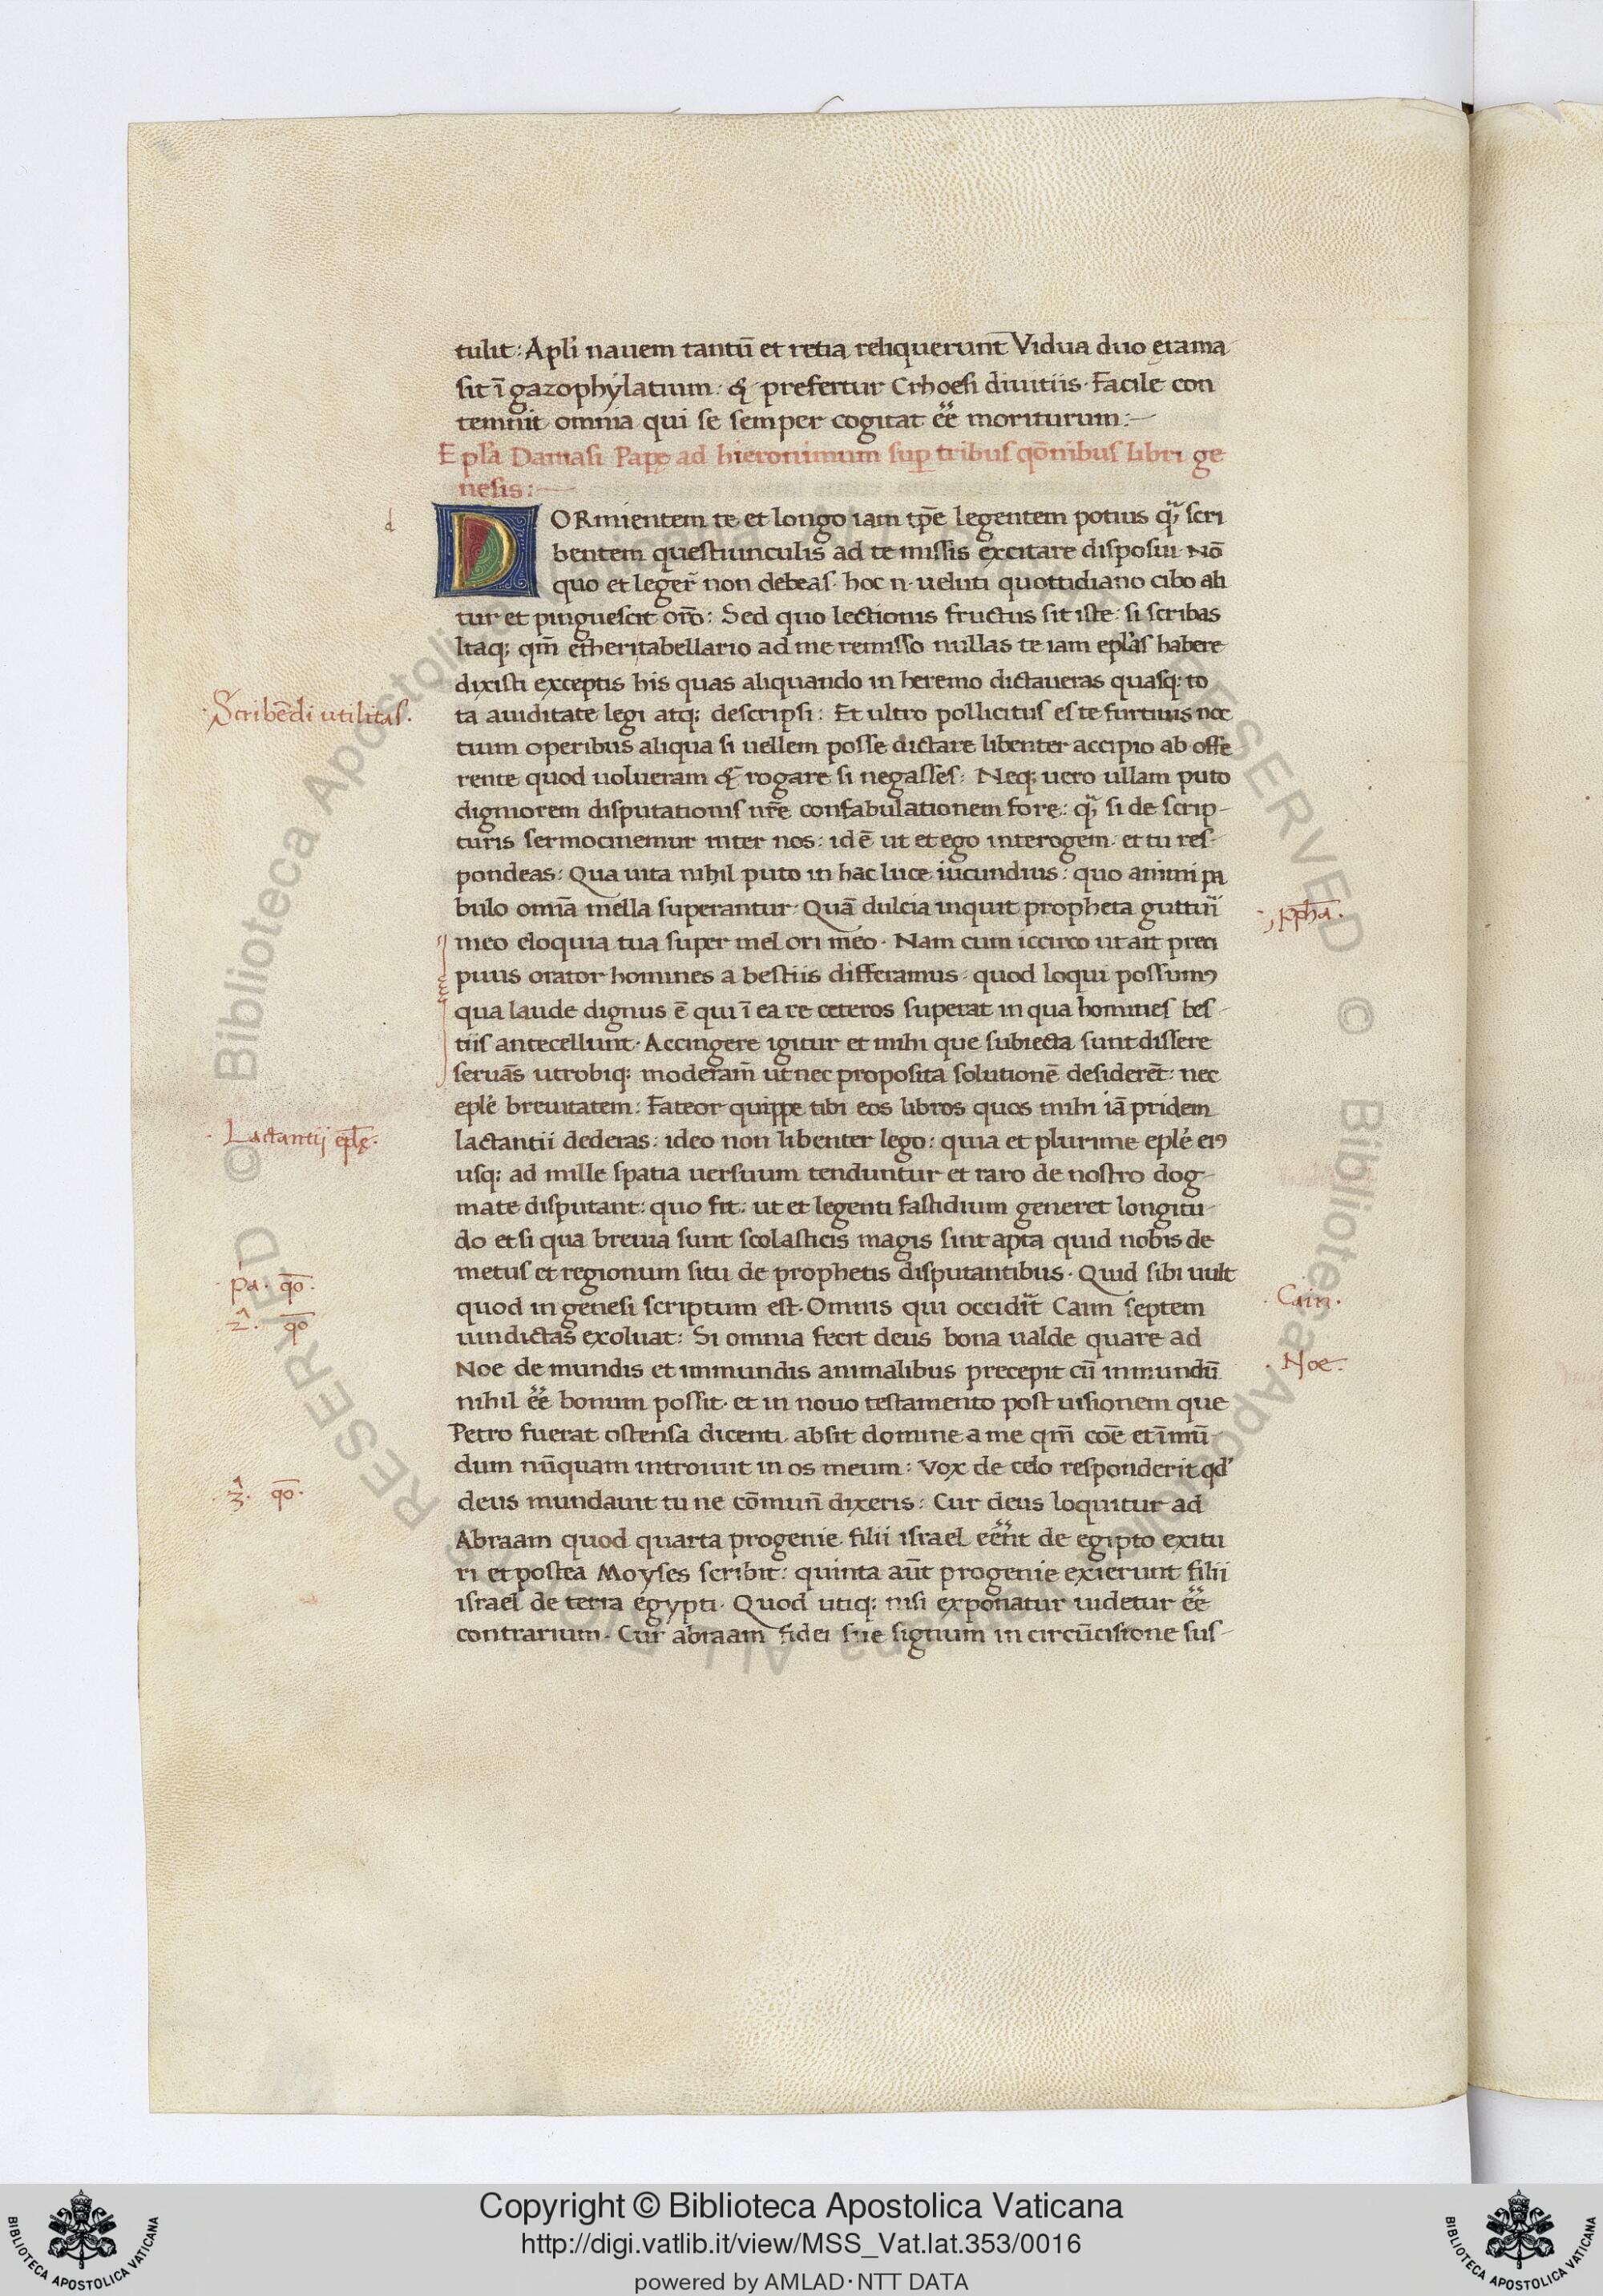 tulit: Apl̃i nauem tantũ et retia reliquerunt̄ Vidua duo ęrama
sit ī gazophẏlatium· & prefertur Crhoesi diuitiis· Facile con
temnit omnia qui se semper cogitat ẽe moriturum:—
Epl̃a Damasi Papę ad hieronimum sup̱ tribus qōnibus libri ge
nesis:—
d
DORmientem te et longo iam tp̄e legentem potius q̃ȝ scri
bentem questiunculis ad te missis excitare disposui· Nō
quo et leger̃ non debeas· hoc n· ueluti quottidiano cibo ali
tur et pinguescit or̄o: Sed quo lectionis fructus sit iste· si scribas
Itaq; qm̄ et heri tabellario ad me remisso nullas te iam epl̃as habere
dixisti exceptis his quas aliquando in heremo dictaueras quasq; to
Scribēdi utilitas.
ta auiditate legi atq; descripsi: Et ultro pollicitus es te furtiuis noc
tuim operibus aliqua si uellem posse dictare libenter accipio ab offe
rente quod uolueram & rogare si negasses: Neq; uero ullam puto
digniorem disputationis nr̄e confabulationem fore: q̃ȝ si de scrip-
turis sermocinemur inter nos: id ē ut et ego interogem· et tu res-
pondeas: Qua uita nihil puto in hac luce iucundius: quo animi pa
bulo omīa mella superantur· Quā dulcia inquit propheta guttur̃i
ꝓph̄a.
meo eloquia tua super mel ori meo· Nam cum iccirco ut ait preci
puus orator homines a bestiis differamus· quod loqui possumꝰ
qua laude dignus ē qui ī ea re ceteros superat in qua homines bes-
tiis antecellunt· Accingere igitur et mihi que subiecta sunt dissere
seruās utrobiq; moderam̄ ut nec proposita solutionē desideret̄: nec
epl̃e breuitatem: Fateor quippe tibi eos libros quos mihi iā pridem
Lactantij epl̃ę.
lactantii dederas: ideo non libenter lego: quia et plurime epl̃e eiꝰ
usq; ad mille spatia uersuum tenduntur et raro de nostro dog-
mate disputant: quo fit: ut et legenti fastidium generet longitu-
do et si qua breuia sunt scolasticis magis sint apta quid nobis de
pa. qō.
metus et regionum situ de prophetis disputantibus· Quid sibi uult
Cain.
quod in genesi scriptum est· Omnis qui occidir̃t Caim septem
2ª. qō
uindictas exoluat: Si omnia fecit deus bona ualde quare ad
Noe.
Noe de mundis et immundis animalibus precepit cū inmundū
nihil ẽe bonum possit· et in nouo testamento post uisionem que
Petro fuerat ostensa dicenti· absit domine a me qm̄ coē et īmū-
dum nūquam introiuit in os meum: Vox de celo responderit qd'
3ª. qō.
deus mundauit tu ne cōmun̄ dixeris: Cur deus loquitur ad
Abraam quod quarta progenie filii israel eẽnt de egipto exitu
ri et postea Moyses scribit: quinta aūt progenie exierunt filii
israel de terra egypti· Quod utiq; nisi exponatur uidetur ẽe
contrarium· Cur abraam fidei sue signum in circūcisione sus-
Copyright © Biblioteca Apostolica Vaticana
http://digi.vatlib.it/view/MSS_Vat.lat.353/0016
powered by AMLAD·NTT DATA
BIBLIOTECA APOSTOLICA VATICANA
BIBLIOTECA APOSTOLICA VATICANA